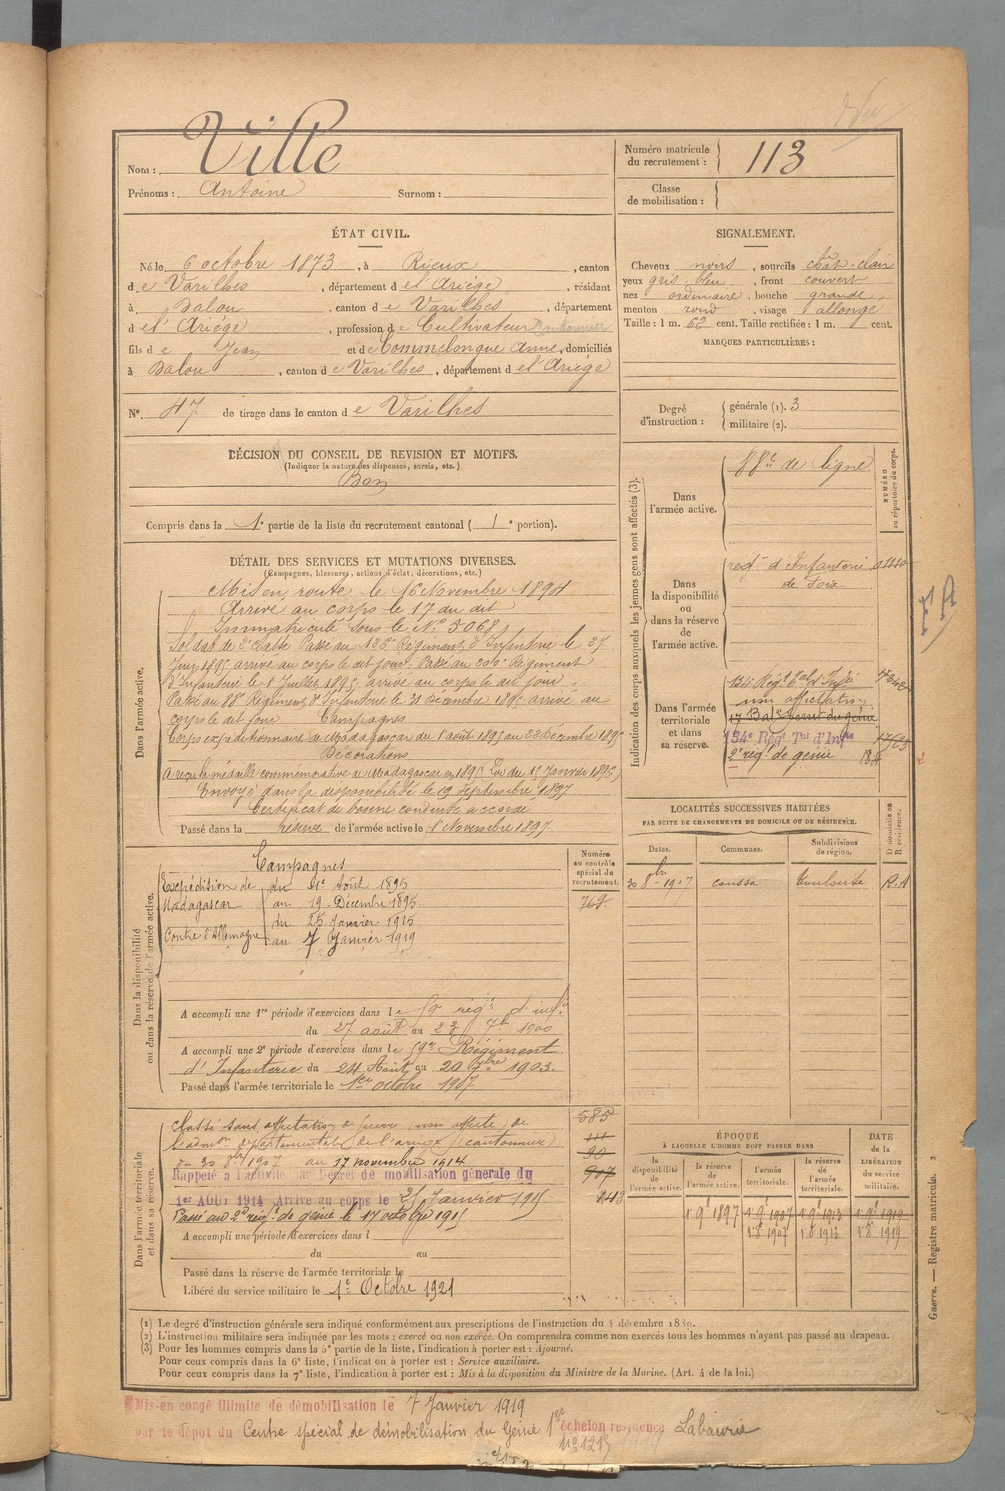 Nom : Ville
Prénoms : Antoine Surnom :
Numéro matricule du recrutement : 113
Classe de mobilisation :
ÉTAT CIVIL.
Né le 6 octobre 1873, à Rieux, canton
de Varilhes, département de l'Ariège, résidant
à Dalou, canton de Varilhes, département
de l'Ariège, profession de Cultivateur Cantonnier
fils de Jean et de Commelongue Anne, domiciliés
à Dalou, canton de Varilhes, département de l'Ariège
N°. 47 de tirage dans le canton de Varilhes
SIGNALEMENT.
Cheveux noirs, sourcils chât-clair
yeux gris-bleu, front couvert
nez ordinaire, bouche grande,
menton rond, visage allongé
Taille : 1 m. 62 cent. Taille rectifiée : 1 m. cent.
MARQUES PARTICULIÈRES :
Degré d'instruction : générale (1). 3
militaire (2).
DÉCISION DU CONSEIL DE REVISION ET MOTIFS.
(Indiquer la nature des dispenses, sursis, etc.)
Bon
Compris dans la 1e partie de la liste du recrutement cantonal ( 1e portion).
DÉTAIL DES SERVICES ET MUTATIONS DIVERSES.
(Campagnes, blessures, actions d'éclat, décorations, etc.)
Dans l'armée active.
Mis en route le 16 Novembre 1894
Arrivé au corps le 17 du dit
Immatriculé sous le N° 5068
Soldat de 2e classe Passé au 136e Régiment d'Infanterie le 27
Juin 1895 arrivé au corps le dit jour. Passé au 200e Régiment
d'Infanterie le 1 Juillet 1895 arrivé au corps le dit jour.
Passé au 88e Régiment d'Infanterie le 31 décembre 1895 arrivé au
corps le dit jour Campagnes
Corps expéditionnaire de Madagascar du 1 août 1895 au 23 Décembre 1895
Décorations
A reçu la médaille commémorative de Madagascar en 1895 (Loi du 15 Janvier 1896)
Envoyé dans la disponibilité le 19 septembre 1897
Certificat de bonne conduite accordé
Passé dans la réserve de l'armée active le 1 Novembre 1897
Indication des corps auxquels les jeunes gens sont affectés (3).
NUMÉRO au répertoire du corps.
Dans l'armée active. 88e de ligne
Dans la disponibilité ou dans la réserve de l'armée active.
régt d'Infanterie
de Foix
Dans l'armée territoriale et dans sa réserve.
134e Régt Tal d'Infie
non affectation
134e Régt Tal d'Infie
2e régt de génie
FA
LOCALITÉS SUCCESSIVES HABITÉES
PAR SUITE DE CHANGEMENTS DE DOMICILE OU DE RÉSIDENCE.
Dates. Communes. Subdivisions de région. D domicile ou R résidence.
30 8bre 1907 Coussa Toulouse
Dans la disponibilité ou dans la réserve de l'armée active.
Numéro au contrôle spécial du recrutement.
Campagnes
Expédition de Madagascar du 1er Août 1895
au 19 Décembre 1895
Contre l'Allemagne du 25 Janvier 1915
au 7 Janvier 1919
A accompli une 1re période d'exercices dans le 59 régt d'inf.
du 27 août au 23 7bre 1900
A accompli une 2e période d'exercices dans le 59e Régiment
d'Infanterie du 24 Août au 20 7bre 1903.
Passé dans l'armée territoriale le 1er octobre 1907
Dans l'armée territoriale et dans sa réserve.
585
111
90
907
Classé sans affectation (non affecté) de
l'admon départementale de l'ariège (cantonnier)
du 30 8bre 1907 au 17 novembre 1914
Rappelé à l'activité par Décret de mobilisation générale du
1er AOUT 1914 Arrivé au corps le 25 Janvier 1915
Passé au 2e régt de génie le 17 octobre 1915
A accompli une période d'exercices dans l
du au
Passé dans la réserve de l'armée territoriale le
Libéré du service militaire le 1er Octobre 1921
ÉPOQUE
À LAQUELLE L'HOMME DOIT PASSER DANS
la disponibilité de l'armée active. la réserve de l'armée active. l'armée territoriale. la réserve de l'armée territoriale.
DATE de la LIBÉRATION du service militaire.
1 9e 1897 1 9e 1907 1 9e 1913 1 9e 1919
1 8e 1907 1 8e 1913 1 8e 1919
Guerre. — Registre matricule. 2
(1) Le degré d'instruction générale sera indiqué conformément aux prescriptions de l'instruction du 4 décembre 1889.
(2) L'instruction militaire sera indiquée par les mots : exercé ou non exercé. On comprendra comme non exercés tous les hommes n'ayant pas passé au drapeau.
(3) Pour les hommes compris dans la 5e partie de la liste, l'indication à porter est : Ajourné.
Pour ceux compris dans la 6e liste, l'indication à porter est : Service auxiliaire.
Pour ceux compris dans la 7e liste, l'indication à porter est : Mis à la disposition du Ministre de la Marine. (Art. 4 de la loi.)
Mis en congé illimité de démobilisation le 7 Janvier 1919
par le dépôt du Centre spécial de démobilisation du Génie 1er échelon résidence